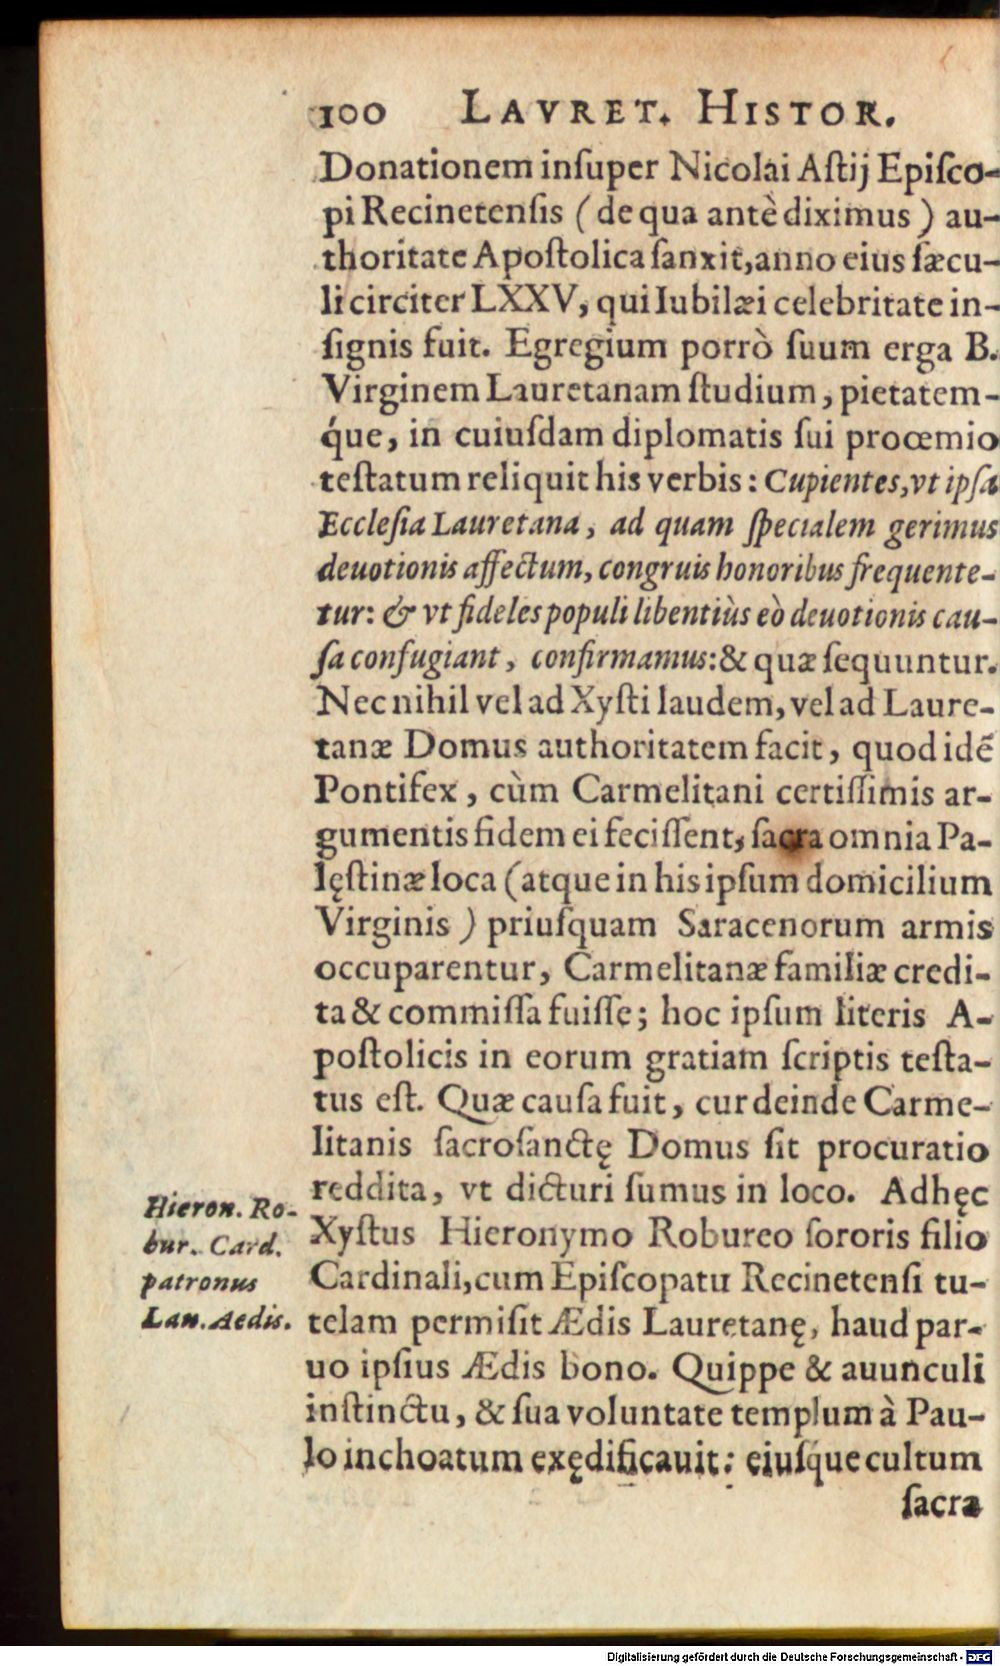 100 LAVRET. HISTOR.
Donationem inſuper Nicolai Aſtij Epiſco-
pi Recinetenſis (de qua antè diximus) au-
thoritate Apoſtolica ſanxit, anno eius ſæcu-
li circiter LXXV, qui Iubilæi celebritate in-
ſignis fuit. Egregium porrò ſuum erga B.
Virginem Lauretanam ſtudium, pietatem-
q́ue, in cuiuſdam diplomatis ſui procemio
teſtatum reliquit his verbis: Cupientes, vt ipſa
Eccleſia Lauretana, ad quam ſpecialem gerimus
deuotionis affectum, congruis honoribus frequente-
tur: & vt fideles populi libentiùs eò deuotionis cau-
ſa confugiant, confirmamus: & quæ ſequuntur.
Nec nihil vel ad Xyſti laudem, vel ad Laure-
tanæ Domus authoritatem facit, quod idẽ
Pontifex, cùm Carmelitani certiſſimis ar-
gumentis fidem ei feciſſent, ſacra omnia Pa-
lęſtinæ loca (atque in his ipſum domicilium
Virginis) priuſquam Saracenorum armis
occuparentur, Carmelitanæ familiæ credi-
ta & commiſſa fuiſſe; hoc ipſum literis A-
poſtolicis in eorum gratiam ſcriptis teſta-
tus eſt. Quæ cauſa fuit, cur deinde Carme-
litanis ſacroſanctę Domus ſit procuratio
reddita, vt dicturi ſumus in loco. Adhęc
Xyſtus Hieronymo Robureo ſororis filio
Cardinali, cum Epiſcopatu Recinetenſi tu-
telam permiſit Ædis Lauretanę, haud par-
uo ipſius Ædis bono. Quippe & auunculi
inſtinctu, & ſua voluntate templum à Pau-
lo inchoatum exędificauit: eiuſq́ue cultum
ſacræ
Hieron. Ro-
bur. Card.
patronus
Lau. Aedis.
Digitalisierung gefördert durch die Deutsche Forschungsgemeinschaft - DFG